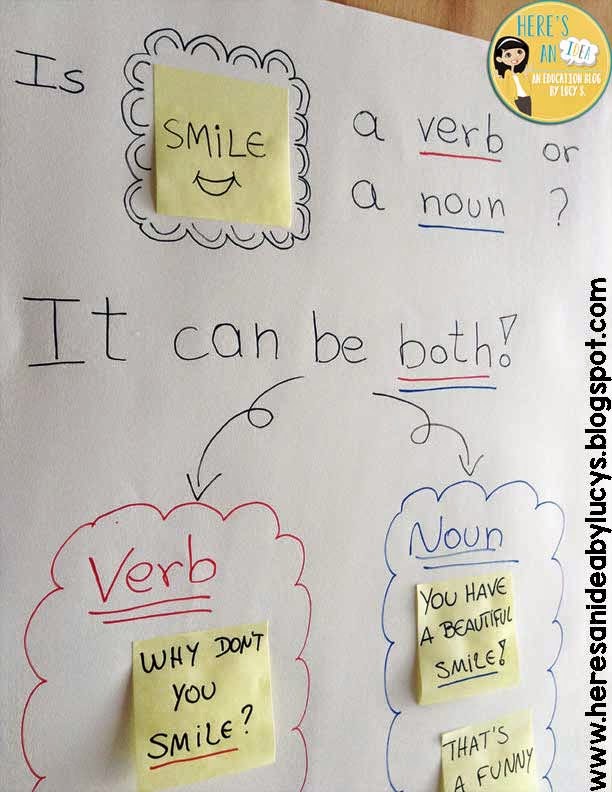 HERE'S
AN IDEA
AN EDUCATION BLOG
BY LUCY S.
Is SMiLE a verb or
a noun ?
It can be both!
Verb
WHY DON'T
YOU
SMILE?
Noun
YOU HAVE
A BEAUTIFUL
SMILE!
THAT'S
A FUNNY
www.heresanideabylucys.blogspot.com